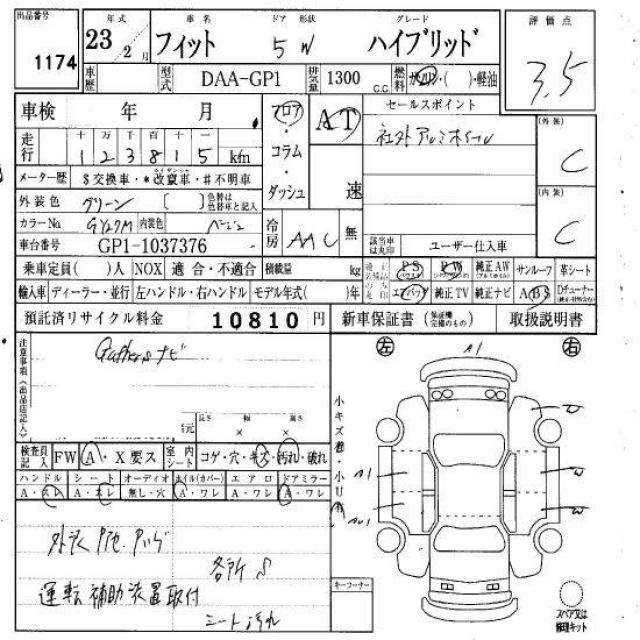 出品番号 1174
年式 23 年 2 月
車名 フィット
ドア 形状 5 W
グレード ハイブリッド
評価点 3.5
車歴
型式 DAA-GP1
排気量 1300 C.C.
燃料 ガソリン・( )・軽油
車検 年 月
フロア・コラム・ダッシュ
AT 速
セールスポイント
社外アルミホイール
(外装) C
(内装) C
走行 十 万 千 百 十 一
1 2 3 8 1 5 km
メーター歴 $交換車・*改竄車・#不明車
外装色 グリーン [ ] 色替は色替車と記入
カラーNo GY27M 内装色 ベージュ
車台番号 GP1-1037376
冷房 AAC 無
該当車は丸印 ユーザー仕入車
乗車定員( )人 NOX 適合・不適合 積載量 kg
PS パワステ PW 純正AW (アルミホイル) サンルーフ 革シート
輸入車 ディーラー・並行 左ハンドル・右ハンドル モデル年式( )年
エアバッグ 純正TV 純正ナビ ABS Dチューナー
預託済リサイクル料金 10810 円
新車保証書 (保証欄完備のもの) 取扱説明書
注意事項(出品店記入)
Gathersナビ
長さ 幅 高さ
× ×
検査員記入 FW A・X要ス
室内シート コゲ・穴・キズ・汚れ・破れ
ハンドル シート オーディオ ホイル(カバー) エアロ ドアミラー
A・スレ A・ヨレ 無し・穴 A・ワレ A・ワレ A・ワレ
各所 S
運転補助装置取付
シート汚れ
小キズ有・小U有
左 右
A1
A1
W
W
キーコーナー
スペア又は修理キット